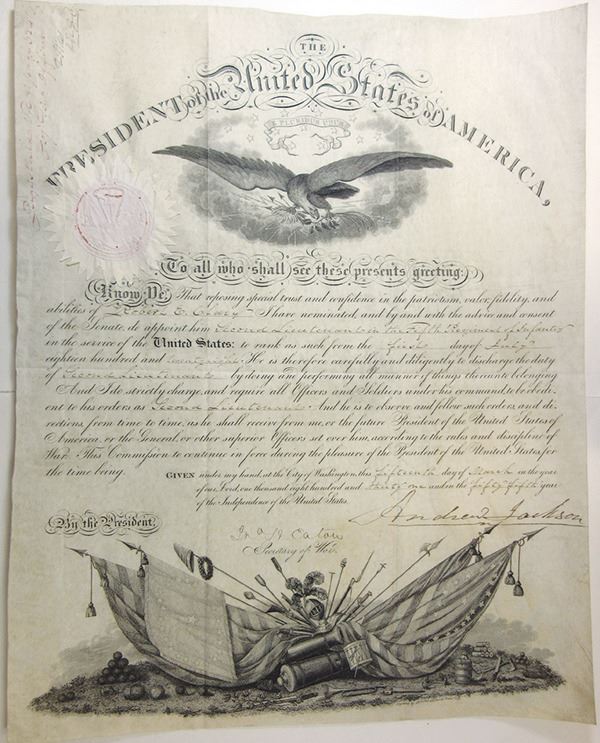 THE
PRESIDENT of the United States of AMERICA,
E PLURIBUS UNUM
To all who shall see these presents greeting:
Know Ye, That reposing special trust and confidence in the patriotism, valor, fidelity, and
abilities of Robert E. Clary I have nominated, and by and with the advice and consent
of the Senate, do appoint him Second Lieutenant in the Fifth Regiment of Infantry
in the service of the United States: to rank as such from the first day of July
eighteen hundred and He is therefore carefully and diligently to discharge the duty
of Second Lieutenant by doing and performing all manner of things thereunto belonging.
And I do strictly charge, and require all Officers and Soldiers under his command, to be obedi-
ent to his orders as Second Lieutenant. And he is to observe and follow such orders, and di-
rections, from time to time, as he shall receive from me, or the future President of the United States of
America, or the General, or other superior Officers set over him, according to the rules and discipline of
War. This Commission to continue in force during the pleasure of the President of the United States, for
the time being.
GIVEN under my hand, at the City of Washington, this fifteenth day of March in the year
of our Lord, one thousand eight hundred and thirty one and in the fifty fifth year
of the Independence of the United States.
Andrew Jackson
By the President,
J. H. Eaton
Secretary of War